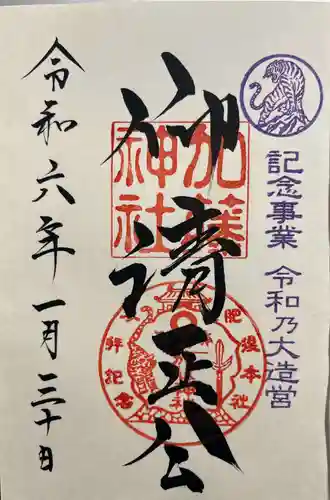 記念事業 令和乃大造営
仰清正公
加藤
神社
肥後本社
拝記念
令和六年一月三十日